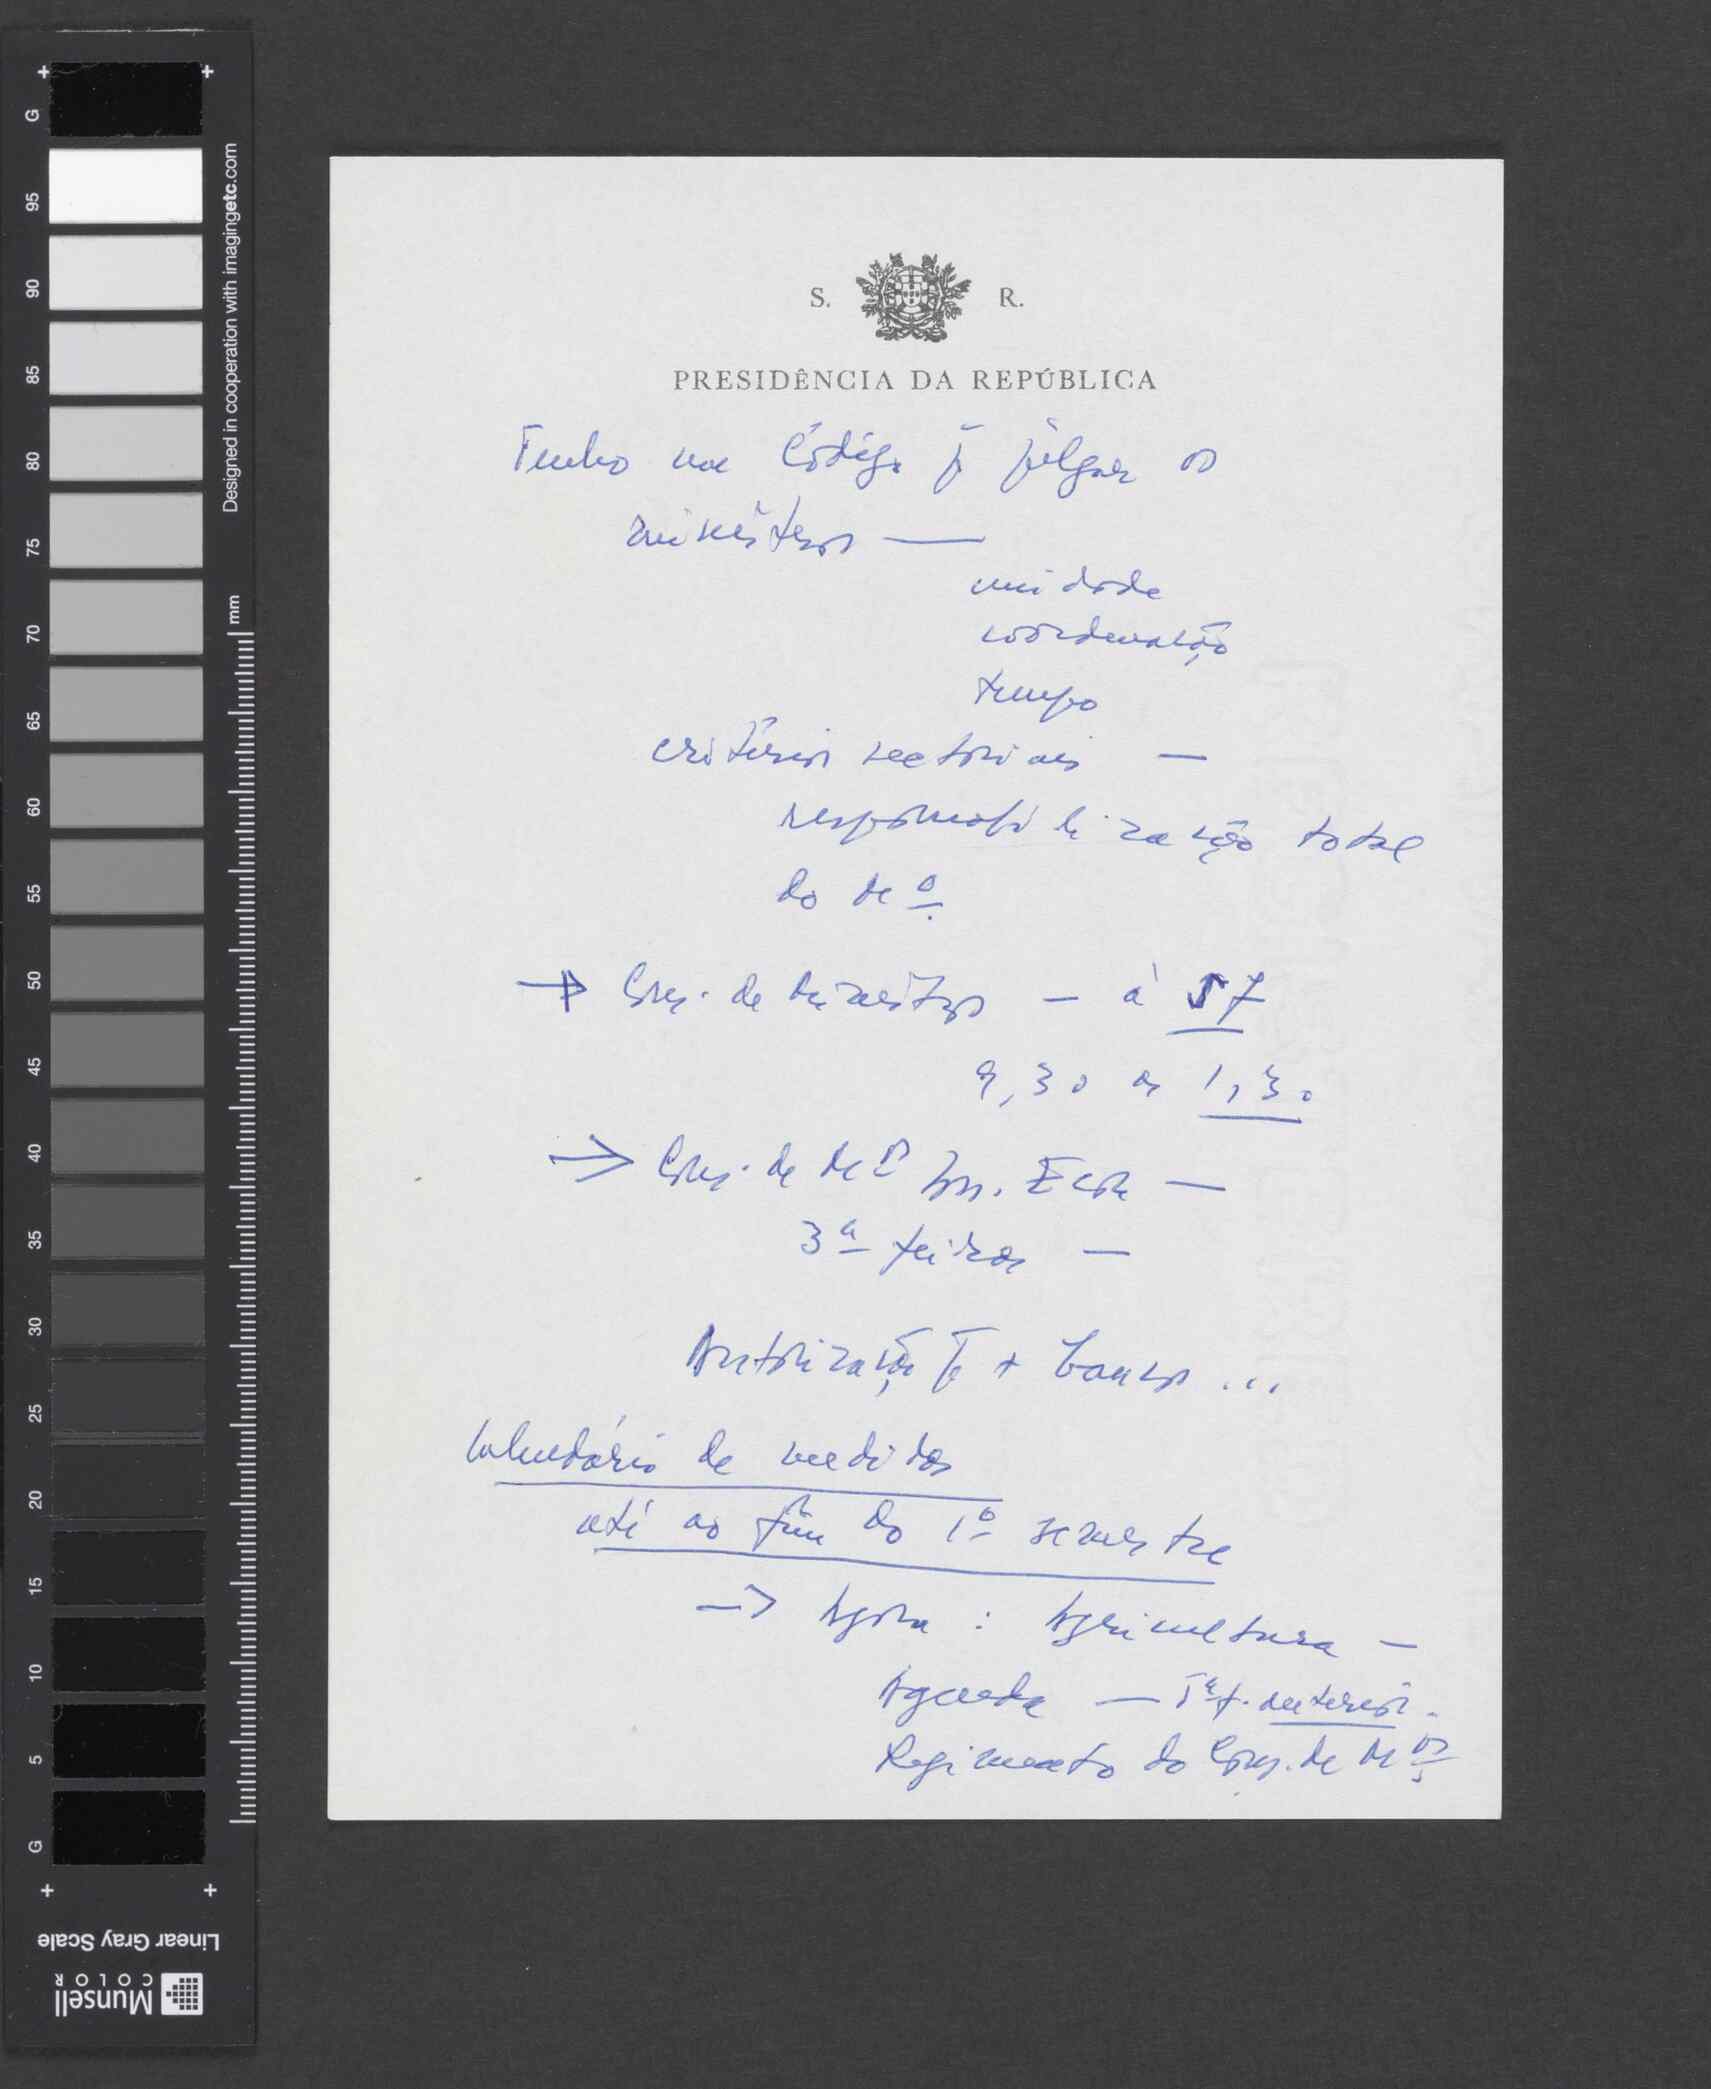 S. R.
PRESIDÊNCIA DA REPÚBLICA
Tenho um Código p̄ julgar os
ministros —
unidade
coordenação
tempo
critérios sectoriais —
responsabilização total
do Mº
→ Cons. de Ministros — à 5ª
9,30 às 1,30
→ Cons. de Mºs Econ —
3ª feiras —
Autorização p̄ + bancos ...
Calendário de medidas
até ao fim do 1º semestre
→ Agora : Agricultura —
Agenda — f. anterior.
Regimento do Cons. de Mºs
G
95
90
85
80
75
70
65
60
55
50
45
40
35
30
25
20
15
10
5
G
Designed in cooperation with imagingetc.com
mm
Linear Gray Scale
Munsell
COLOR